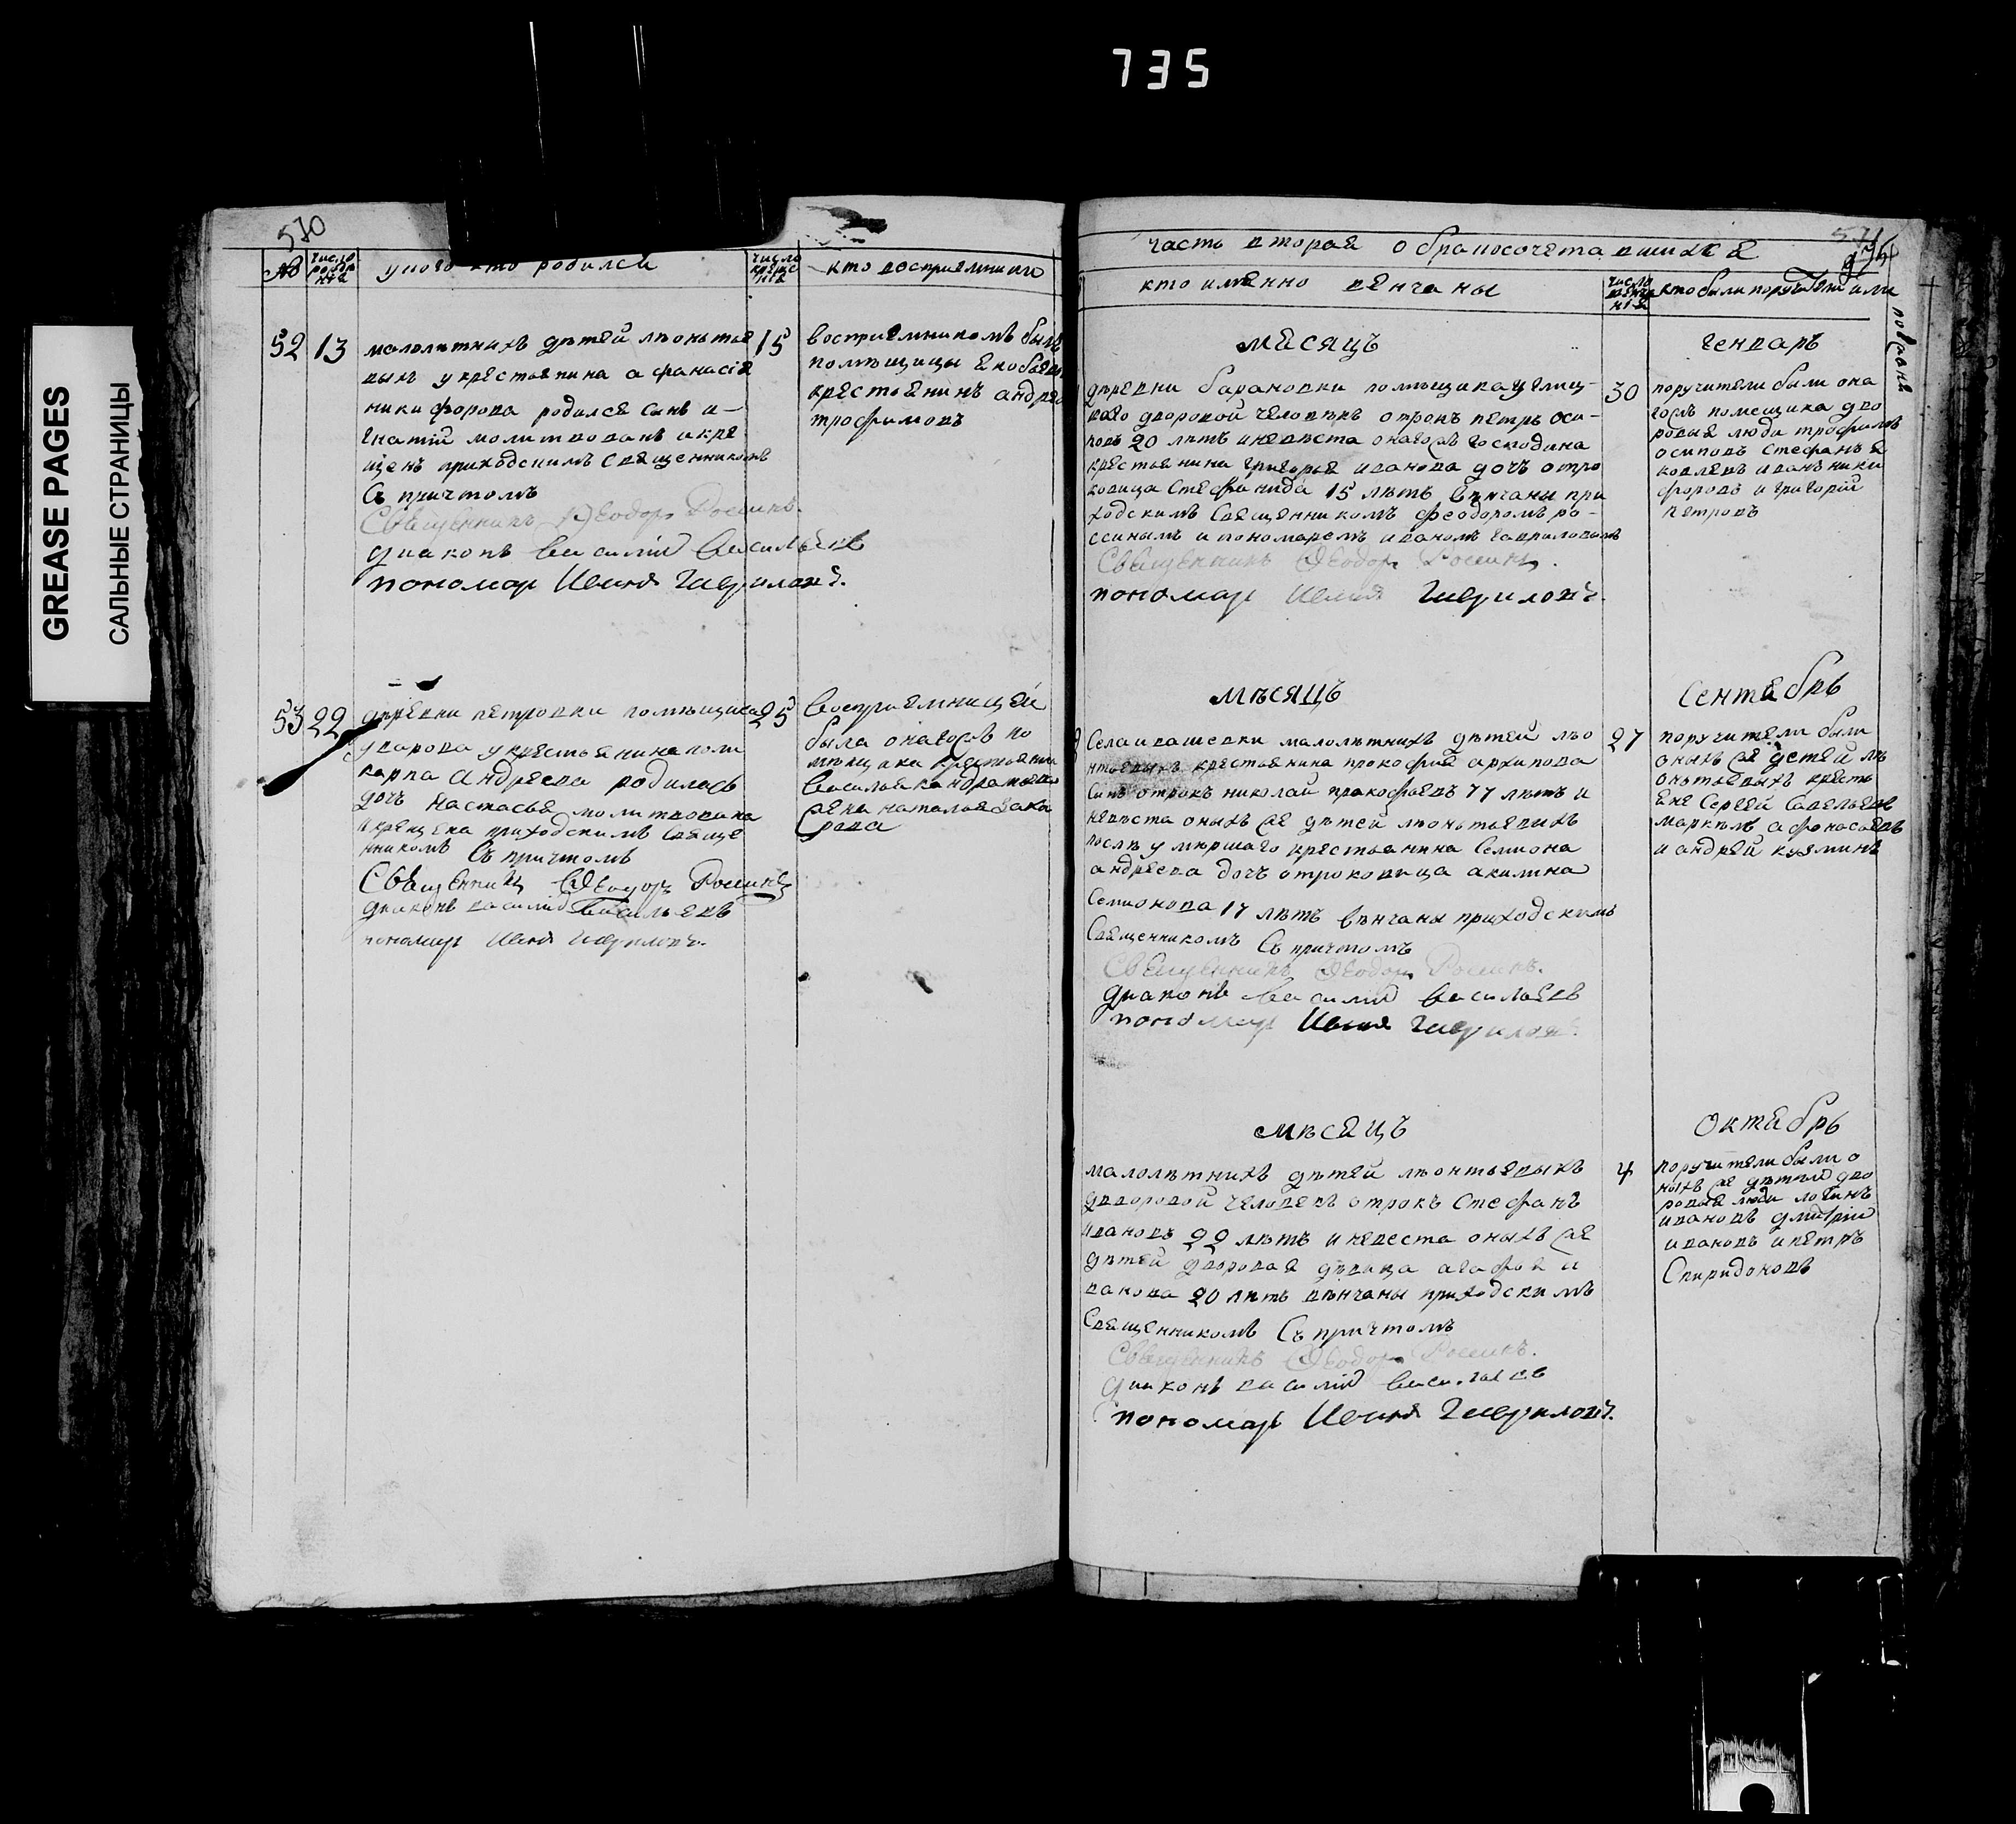 735
GREASE PAGES
САЛЬНЫЕ СТРАНИЦЫ
570
№
число рождения
у кого кто родился
число крещения
кто восприемники
52 13
малолѣтнихъ дѣтей лѣонтье
выхъ у крестьянина афанасія
никифорова родился сынъ и–
гнатій молитвованъ и кре
щенъ приходскимъ священникомъ
съ причтомъ
Священникъ Ѳеодоръ Россинъ.
диаконъ василій васильевъ
пономарь Иванъ Гавриловъ.
15
восприемникомъ былъ
помѣщицы
крестьянинъ андрей
трофимовъ
53 22
дѣревни петровки помѣщика
уварова у крестьянина поли
карпа андреева родилась
дочь настасья молитвована
и крещена приходскимъ свяще
нникомъ съ причтомъ
Священникъ Ѳеодоръ Россинъ
диаконъ василій васильевъ
пономарь Иванъ Гавриловъ.
25
восприемницей
была онагожъ по
мѣщика крестьянина
василья кандратьева
жена наталья заха
рова
часть вторая о бракосочетавшихся
кто имянно венчаны
число венчания
кто были поручители
мѣсяцъ
генварь
дѣревни барановки помѣщика
дворовой человѣкъ отрокъ пѣтръ оси–
повъ 20 лѣтъ и невѣста онагожъ господина
крестьянина григорья иванова дочь отро
ковица стефанида 15 лѣтъ вѣнчаны при
ходскимъ священникомъ феодоромъ ро–
ссинымъ и пономаремъ иваномъ гавриловымъ
Священникъ Ѳеодоръ Россинъ.
пономарь Иванъ Гавриловъ.
30
поручители были она
гожъ помещика дво
ровыя люди трофимъ
осиповъ стефанъ я
ковлевъ иванъ ники
форовъ и григорій
петровъ
мѣсяцъ
Сентябрь
Села ивашевки малолѣтнихъ дѣтей лѣо
нтьевыхъ крестьянина прокофия архипова
сынъ отрокъ николай пракофьевъ 17 лѣтъ и
невѣста оныхъ же дѣтей лѣонтьевыхъ
послѣ умершаго крестьянина семиона
андреева дочь отроковица акилина
Семионова 17 лѣтъ вѣнчаны приходскимъ
Священникомъ съ причтомъ
Священникъ Ѳеодоръ Россинъ.
диаконъ василій васильевъ
пономарь Иванъ Гавриловъ.
27
поручители были
оныхъ же детей лѣ
онтьевыхъ кресть
яне Сергей савельевъ
маркелъ афонасьевъ
и андрей кузминъ
мѣсяцъ
Октябрь
малолѣтнихъ дѣтей лѣонтьевыхъ
дворовой человекъ отрокъ стефанъ
ивановъ 22 лѣтъ и невеста оныхъ же
дѣтей дворовая дѣвица агафья и
ванова 20 лѣтъ вѣнчаны приходскимъ
Священникомъ съ причтомъ
Священникъ Ѳеодоръ Россинъ.
диаконъ василій васильевъ
пономарь Иванъ Гавриловъ.
4
поручители были о
ныхъ же дѣтей дво
ровыя люди логинъ
ивановъ дмитрій
ивановъ и пѣтръ
Спиридоновъ